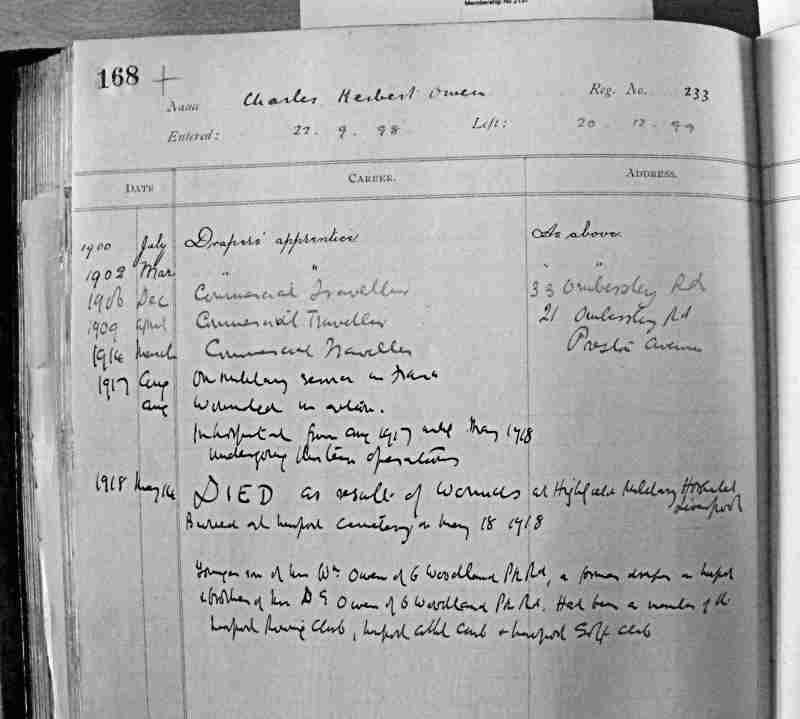 168
Name Charles Herbert Owen Reg. No. 233
Entered: 22. 9. 98 Left: 20 12. 99
DATE CAREER. ADDRESS.
1900 July Drapers' apprentice As above
1902 Mar " " " "
1906 Dec Commercial Traveller 33 Ombersley Rd
1909 April Commercial Traveller 21 Ombersley Rd
1914 March Commercial Traveller Preston Avenue
1917 Aug On military service in France
Aug Wounded in action.
In hospital from Aug 1917 until May 1918
undergoing thirteen operations
1918 May 14 DIED as result of wounds at Highfield Military Hospital
Liverpool
Buried at Newport Cemetery on May 18 1918
Younger son of Mr Wm Owen of 6 Woodland Pk Rd, a former draper in Newport
& brother of Mr D Owen of 6 Woodland Pk Rd. Had been a member of the
Newport Rowing Club, Newport Athl. Club & Newport Golf Club